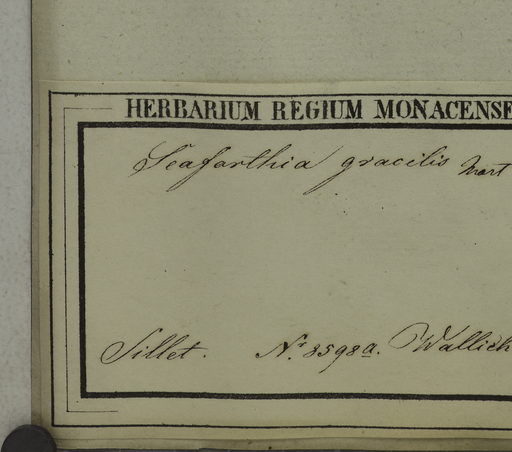 HERBARIUM REGIUM MONACENSE
Seafarthia gracilis Mart
Sillet. Nr. 8598a. Wallich